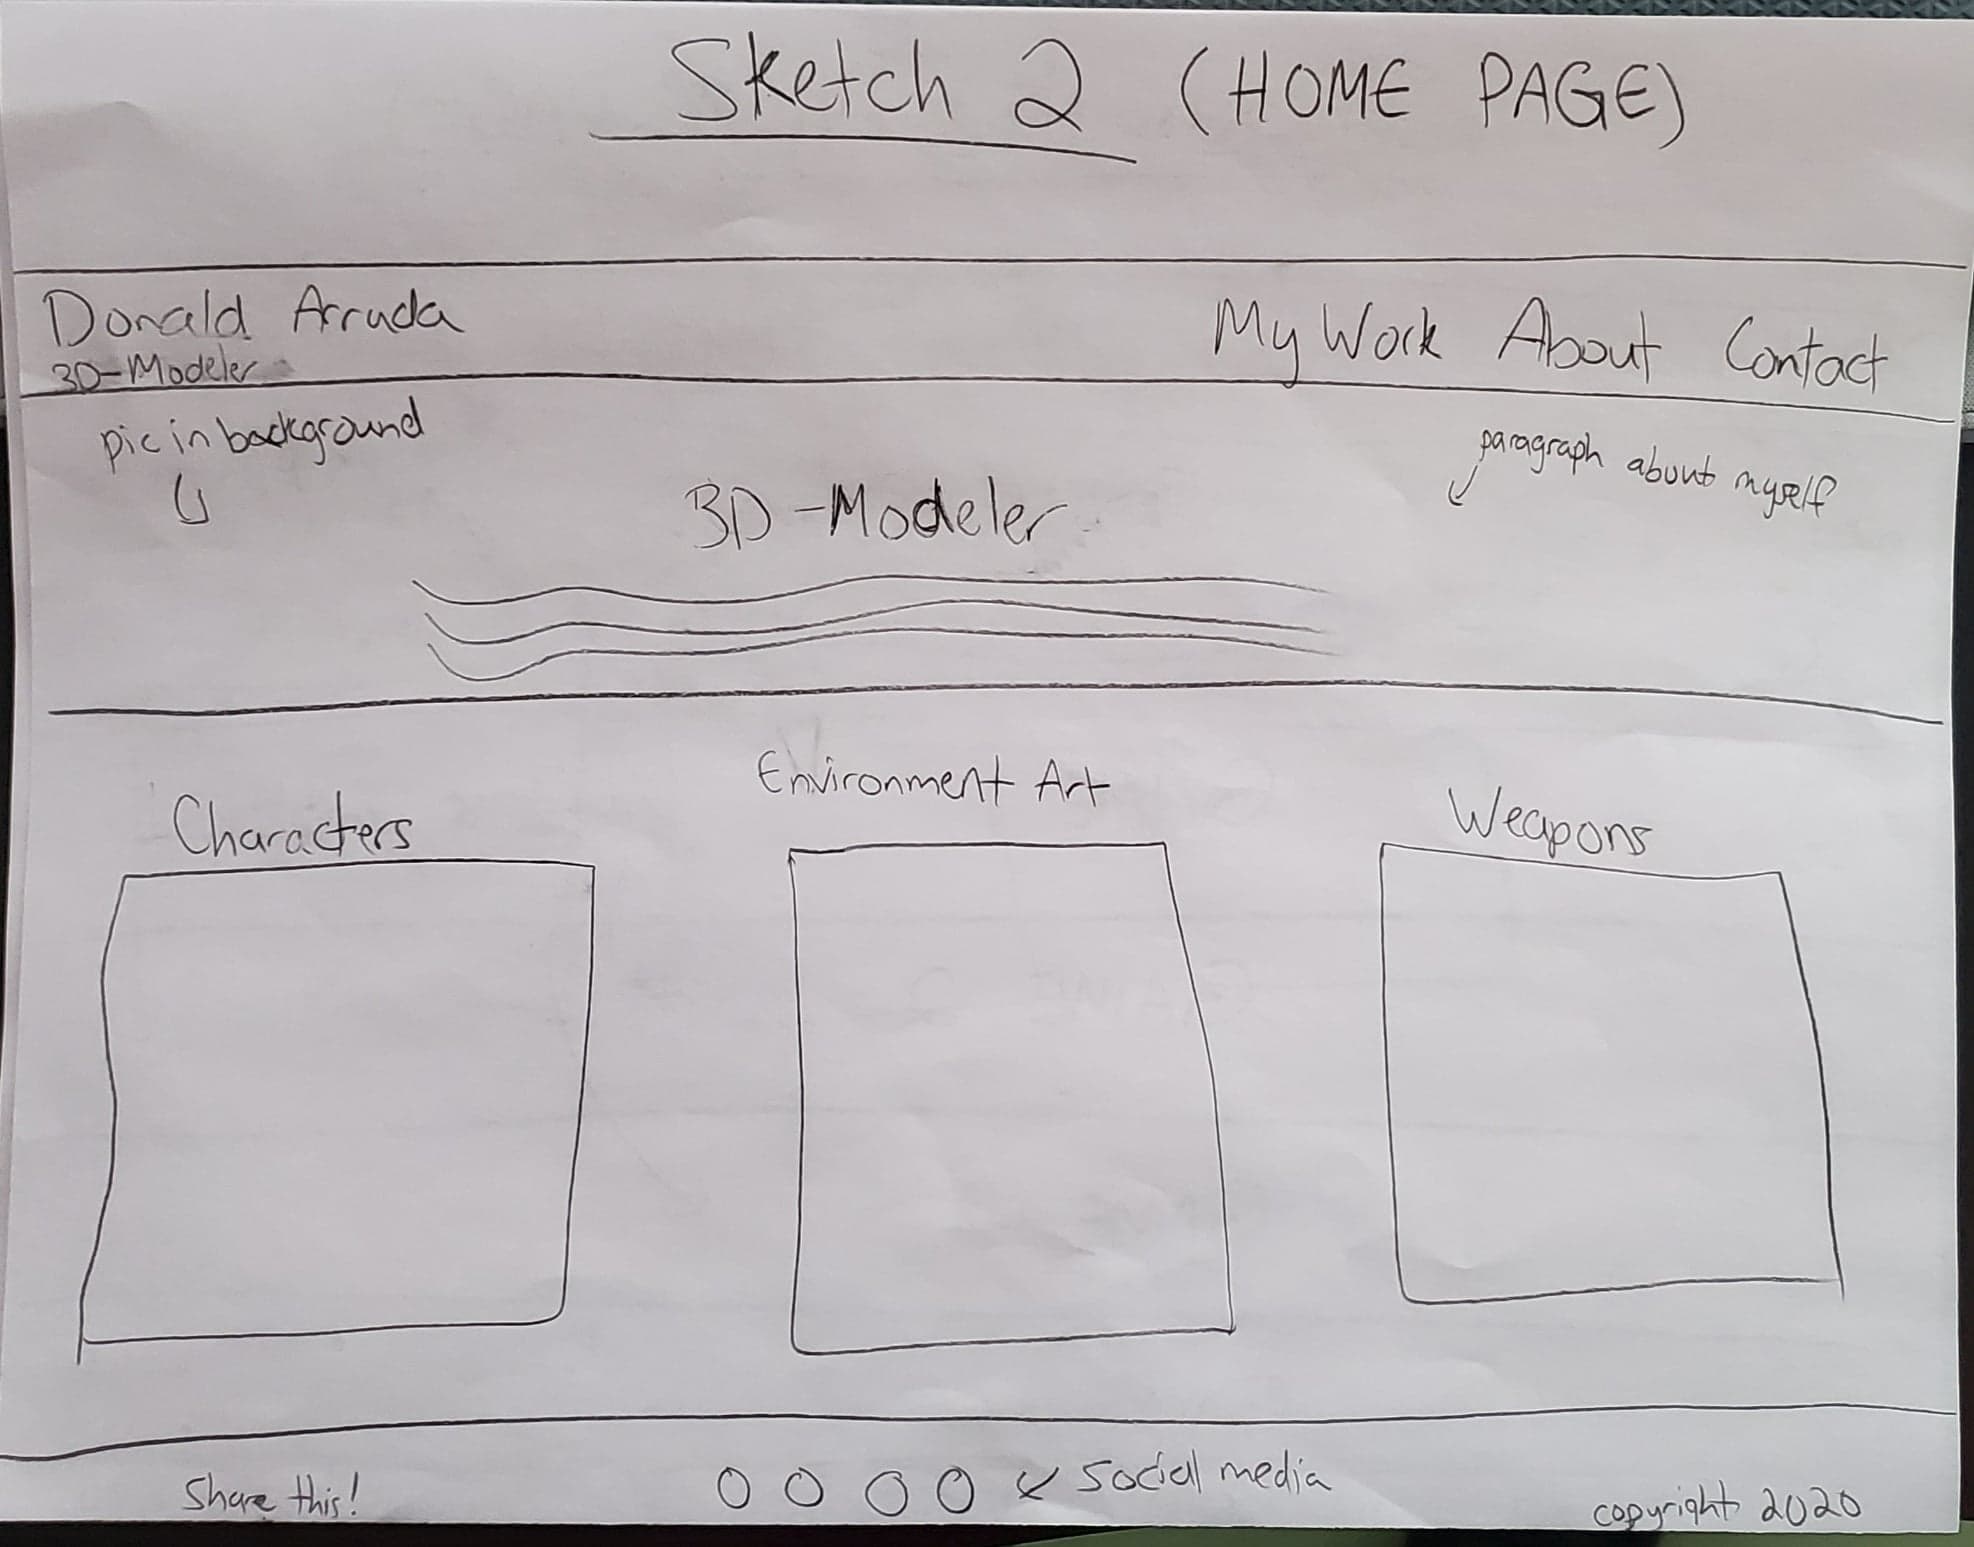 Sketch 2 (HOME PAGE)
Donald Arruda
3D-Modeler
My Work About Contact
pic in background
paragraph about myself
3D-Modeler
Characters
Environment Art
Weapons
Share this!
social media
copyright 2020